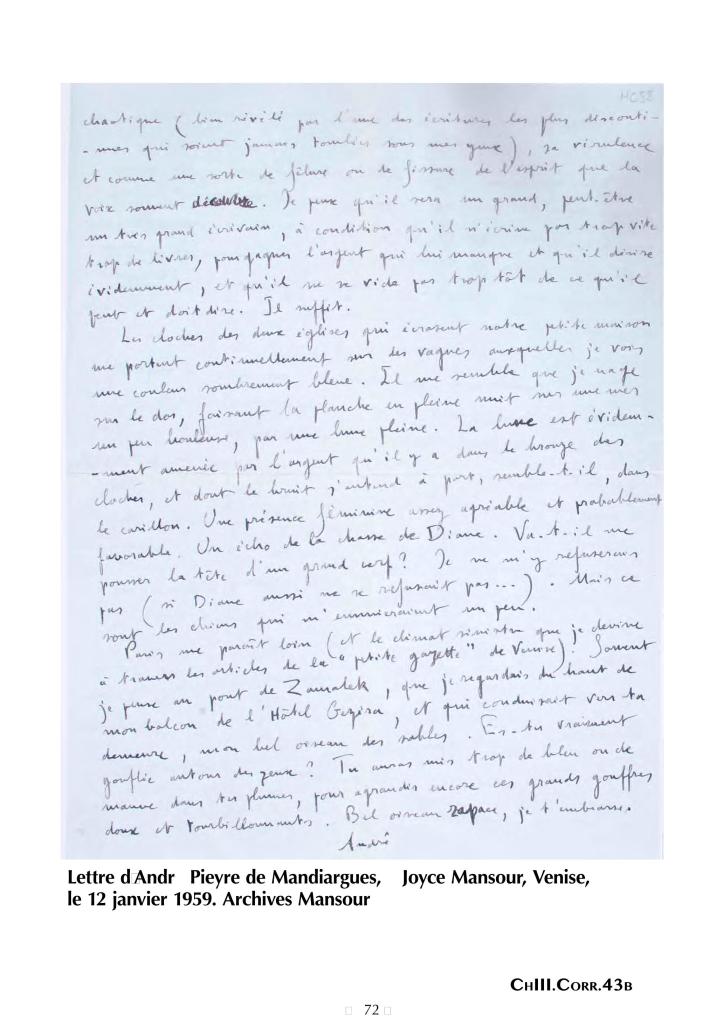 MC58
chaotique (bien révélé par l'une des écritures les plus disconti-
-nues qui soient jamais tombées sous mes yeux), sa virulence
et comme une sorte de fêlure ou de fissure de l'esprit que la
voix souvent découvre. Je pense qu'il sera un grand, peut-être
un très grand écrivain, à condition qu'il n'écrive pas trop vite
trop de livres, pour gagner l'argent qui lui manque et qu'il désire
évidemment, et qu'il ne se vide pas trop tôt de ce qu'il
peut et doit dire. Il suffit.
Les cloches des deux églises qui écrasent notre petite maison
me portent continuellement sur des vagues auxquelles je vois
une couleur sombrement bleue. Il me semble que je nage
sur le dos, faisant la planche en pleine nuit sur une mer
un peu houleuse, par une lune pleine. La lune est évidem-
-ment amenée par l'argent qu'il y a dans le bronze des
cloches, et dont le bruit s'entend à part, semble-t-il, dans
le carillon. Une présence féminine assez agréable et probablement
favorable. Un écho de la chasse de Diane. Va-t-il me
pousser la tête d'un grand cerf? Je ne m'y refuserais
pas (si Diane aussi ne se refusait pas...). Mais ce
sont les chiens qui m'ennuieraient un peu.
Paris me paraît loin (et le climat sinistre que je devine
à travers les articles de la "petite gazette" de Venise). Souvent
je pense au pont de Zamalek, que je regardais du haut de
mon balcon de l'Hôtel Gezira, et qui conduisait vers ta
demeure, mon bel oiseau des sables. Es-tu vraiment
gonflée autour des yeux? Tu auras mis trop de bleu ou de
mauve dans tes plumes, pour agrandir encore ces grands gouffres
doux et tourbillonnants. Bel oiseau rapace, je t'embrasse.
André
Lettre d Andr Pieyre de Mandiargues, Joyce Mansour, Venise,
le 12 janvier 1959. Archives Mansour
CHIII.CORR.43B
72